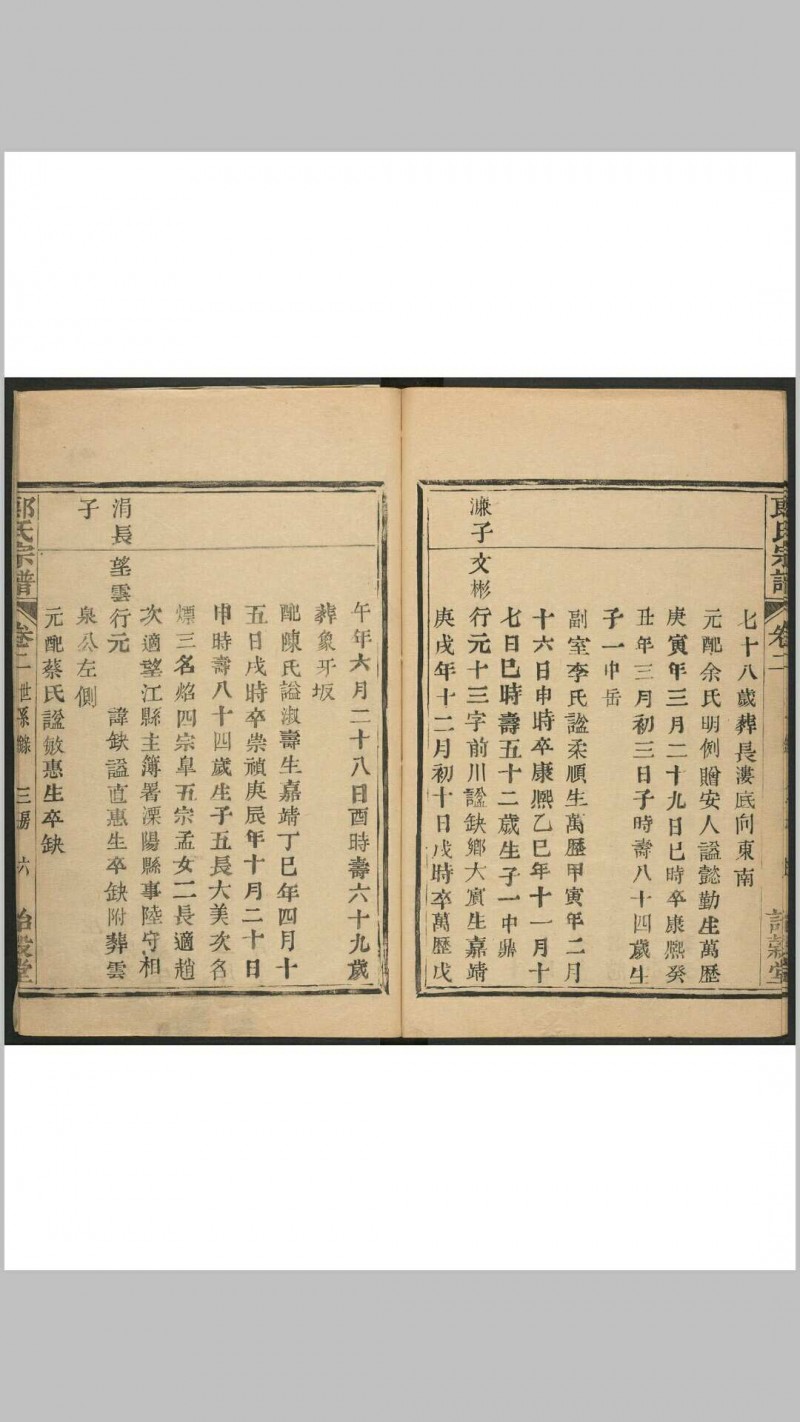 七十八歲葬長漊底向東南
元配余氏明例贈安人謚懿勤生萬歷
庚寅年三月二十九日巳時卒康熙癸
丑年三月初三日子時壽八十四歲生
子一中岳
副室李氏謚柔順生萬歷甲寅年二月
十六日申時卒康熙乙巳年十一月十
七日巳時壽五十二歲生子一中鼎
濂子 文彬 行元十三字前川謚缺鄉大賔生嘉靖
庚戌年十二月初十日戌時卒萬歷戊
午年六月二十八日酉時壽六十九歲
葬象牙坂
配陳氏謚淑壽生嘉靖丁巳年四月十
五日戌時卒崇禎庚辰年十月二十日
申時壽八十四歲生子五長大美次名
煙三名焰四宗皐五宗孟女二長適趙
次適望江縣主簿署溧陽縣事陸守相
涓長 望雲 行元 諱缺謚直惠生卒缺附葬雲
子 泉公左側
元配蔡氏謚敏惠生卒缺
氏宗譜 卷二 世系錄 三房 六